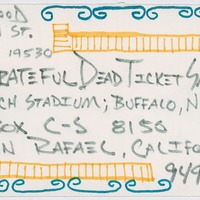 OOD
ST.
19530
RATEFUL DEAD TICKET S
CH STADIUM; BUFFALO, N
BOX C-S 8150
N RAFAEL, CALIFO
949